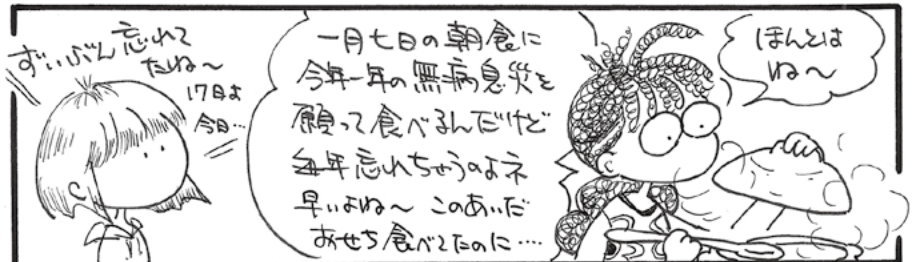 ほんとは
ね〜
一月七日の朝食に
今年一年の無病息災を
願って食べるんだけど
毎年忘れちゃうのよネ
早いよね〜 このあいだ
おせち食べてたのに‥‥
ずいぶん忘れて
たね〜
17日よ
今日‥‥